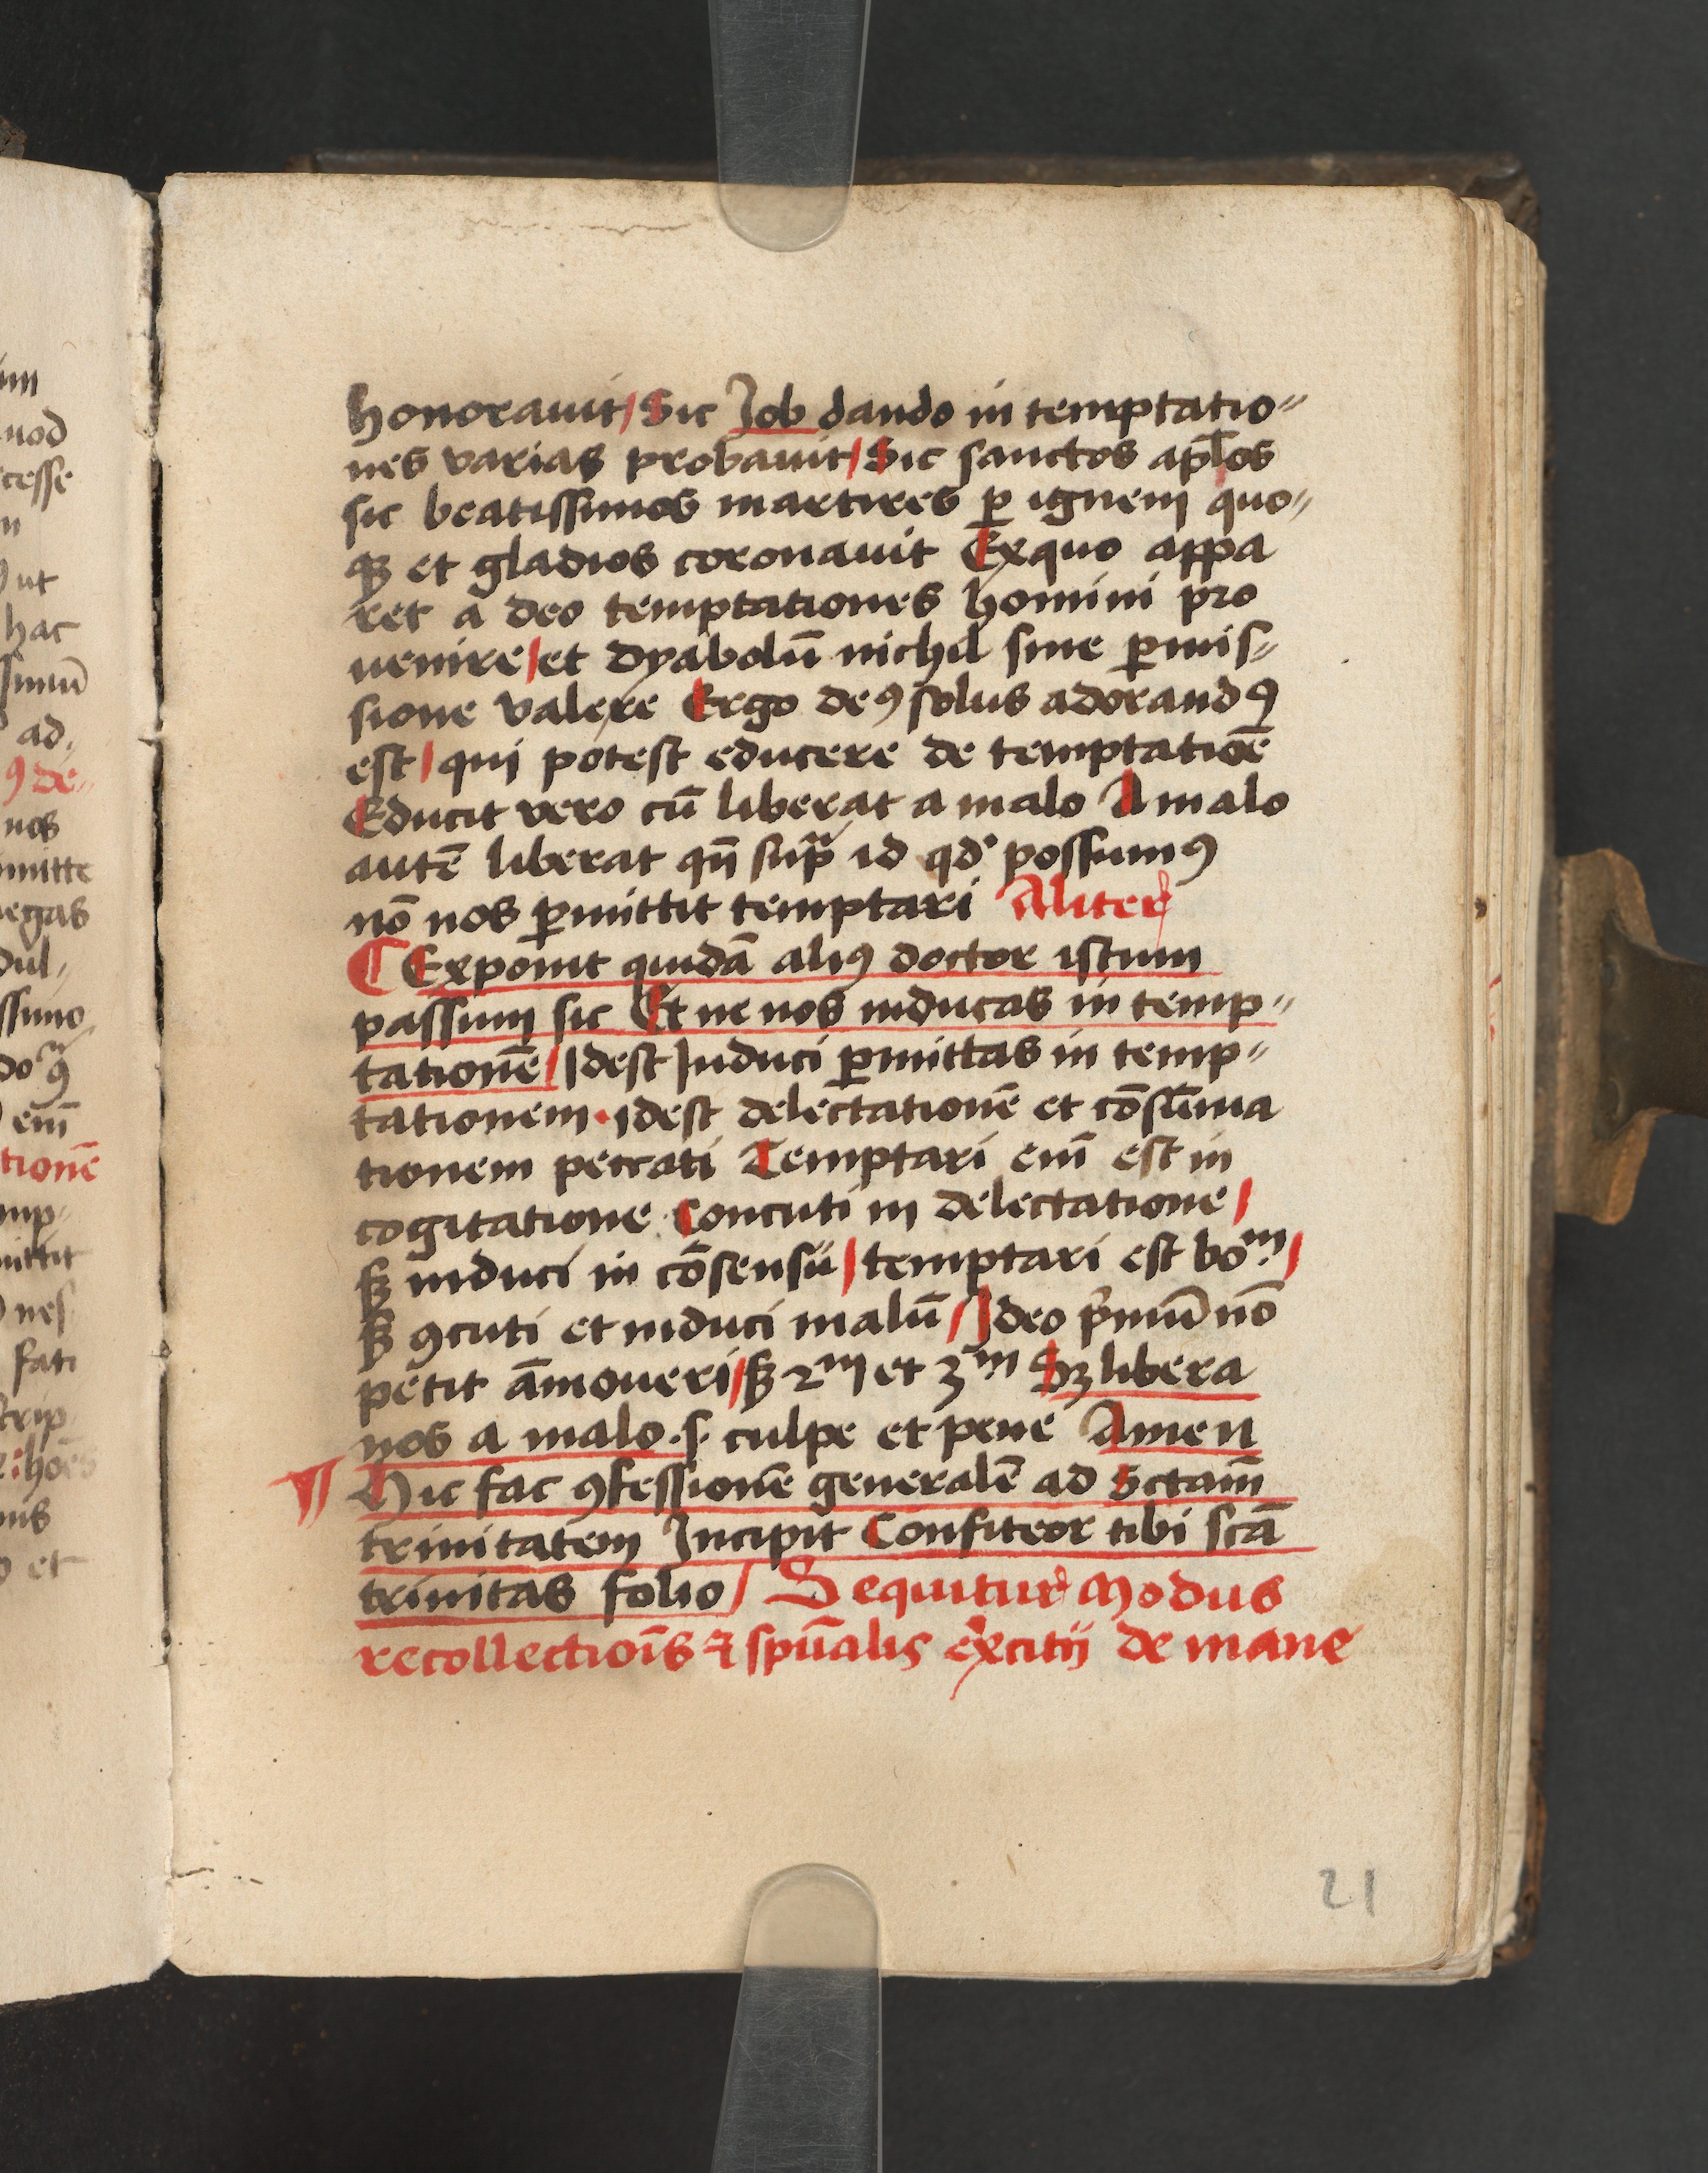 honorauit / Sic Job dando in temptatio⸗
nes varias probauit / Sic sanctos apl̄os
sic beatissimos martires ꝑ ignem quo⸗
qꝫ et gladios coronauit Exquo appa
ret a deo temptationes homini pro
uenire / et dyabolū nichil sine ꝑmis⸗
sione valere Ergo deꝰ solus adorandꝰ
est / qui potest educere de temptatiōe
Educit vero cū liberat a malo A malo
autē liberat qn̄ supͣ id qdͦ possumꝰ
nō nos ꝑmittit temptari Aliter
¶ Exponit quidā aliꝰ doctor istum
passum sic Et ne nos inducas in temp⸗
tationē / Idest Induci ꝑmittas in temp⸗
tationem · idest delectationē et cōsūma
tionem peccati Temptari eni̅ est in
cogitatione Concuti in delectatione /
sꝫ induci in cōsensū / temptari est boᵐ /
sꝫ ꝯcuti et induci malū / Ideo pͥmū nō
petit āmoueri / sꝫ 2ᵐ et 3ᵐ Sꝫ libera
nos a malo .s. culpe et pene Amen
¶ Hic fac ꝯfessionē generalē ad Sctam̄
trinitatem Incipit Confiteor tibi scā
trinitas folio / Sequitur Modus
recollectiōis ⁊ spūalis exͬcitij de mane
21